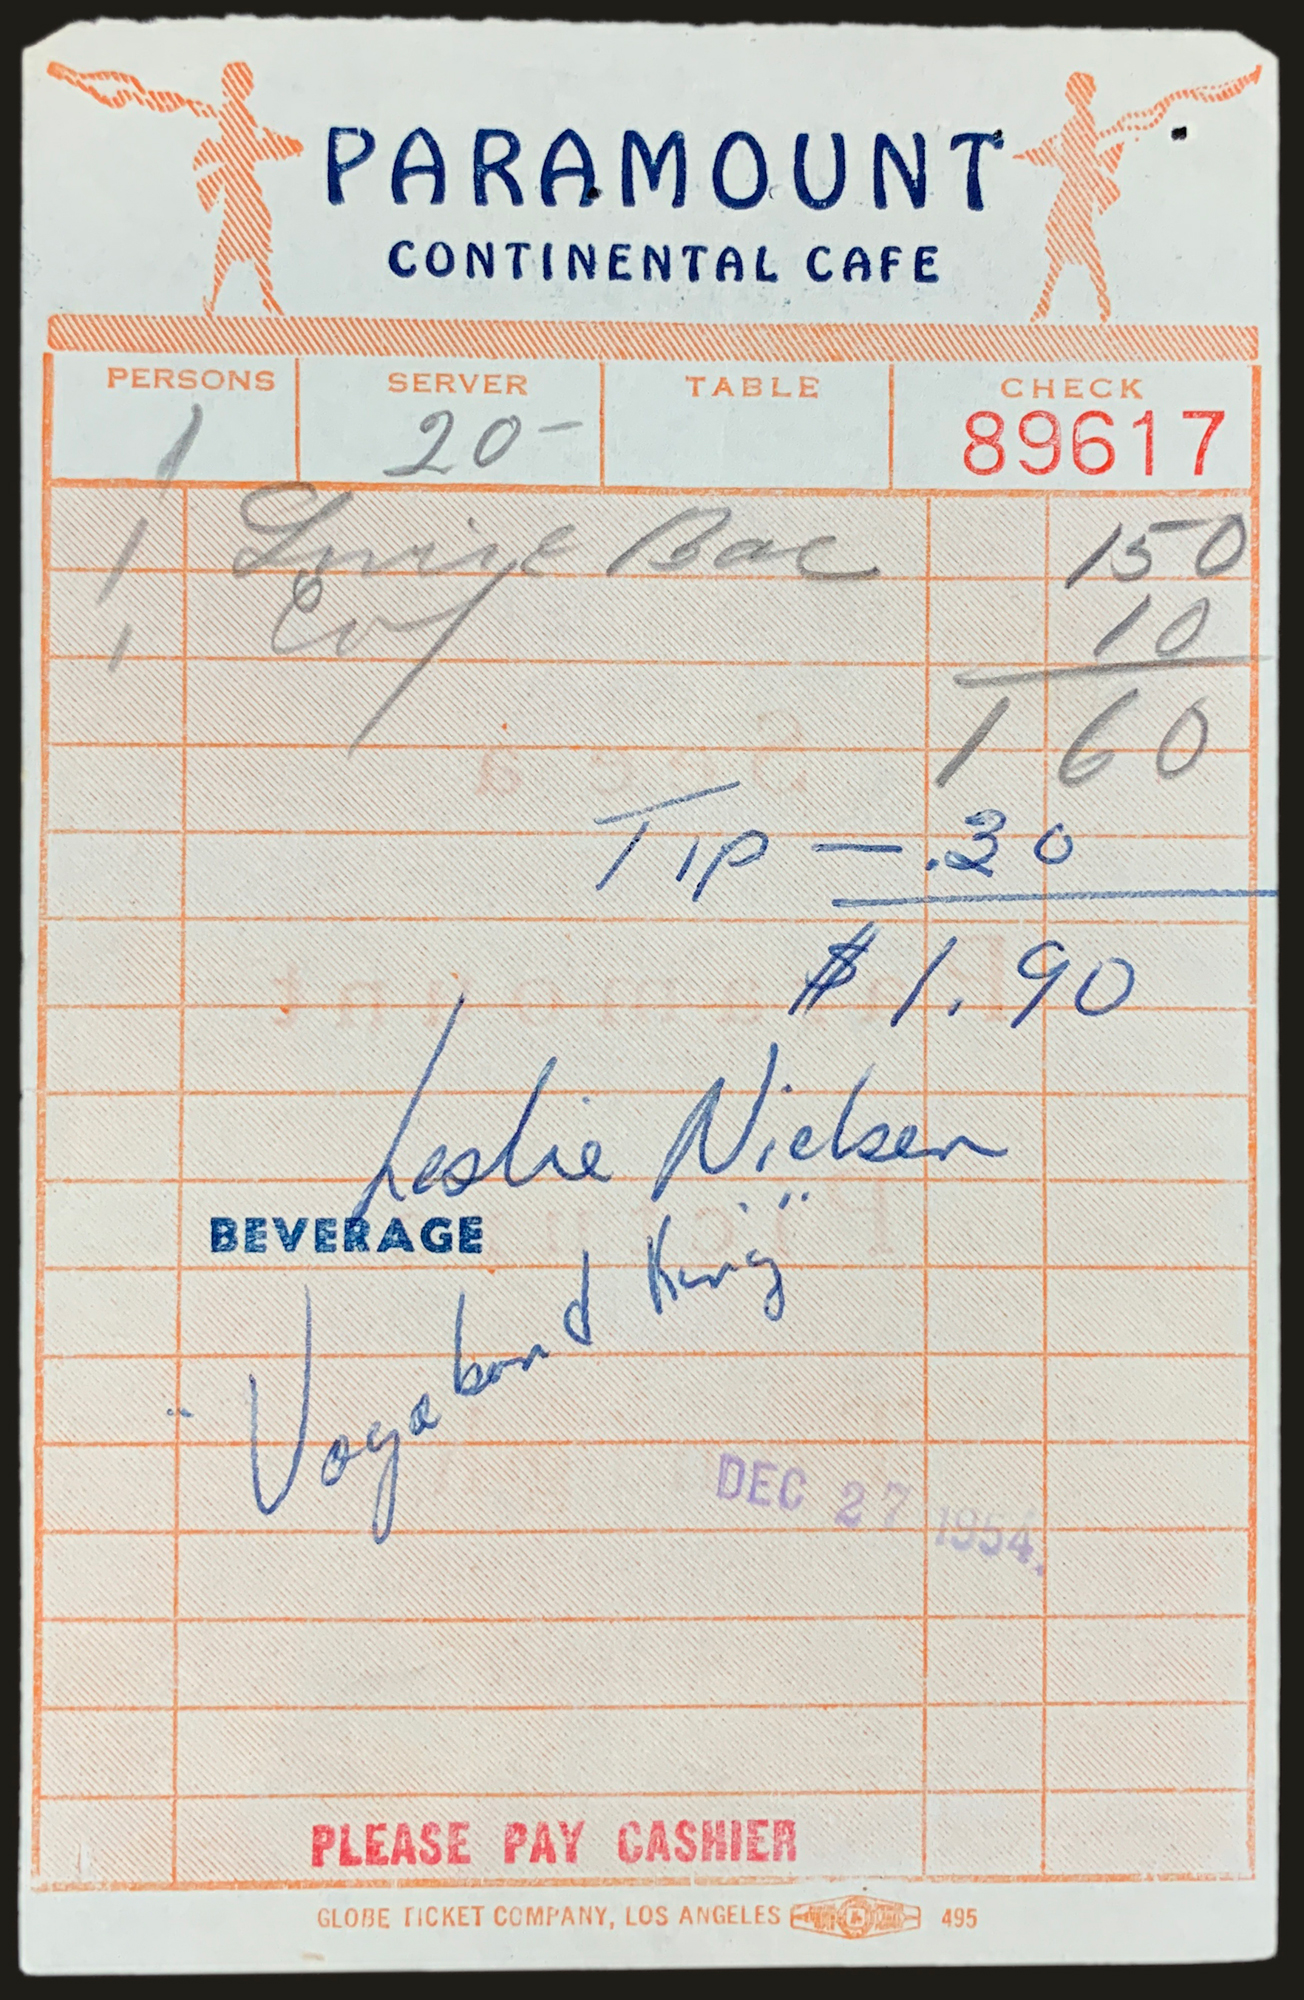 PARAMOUNT
CONTINENTAL CAFE
PERSONS SERVER TABLE CHECK
1 20- 89617
1 150
1 10
1 60
Tip — .30
$1.90
Leslie Nielsen
BEVERAGE
"Vagabond King"
DEC 27 1954
PLEASE PAY CASHIER
GLOBE TICKET COMPANY, LOS ANGELES 495